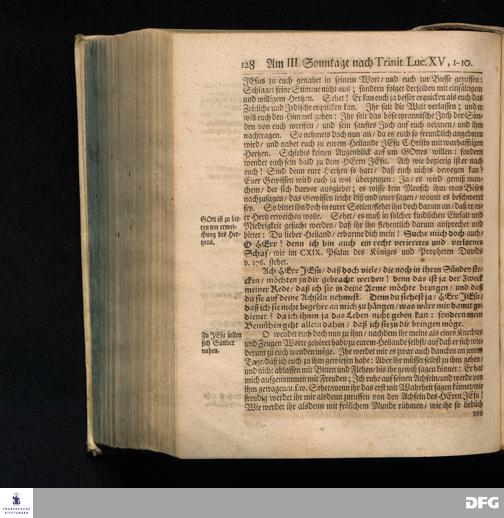 128 Am III. Sonntage nach Trinit. Luc. XV, 1-10.
JEsus zu euch genahet in seinem Wort/ und euch zur Busse geruffen:
Schlaget seine Stimme nicht aus; sondern folget derselben mit einfältigen
und willigem Hertzen. Sehet! Er kan euch ja besser erquicken als euch das
Zeitliche und Irdische erquicken kan. Ihr solt die Welt verlassen; und er
will euch den Himmel geben: Ihr solt das böse tyrannische Joch der Sün-
den von euch werffen/ und sein sanftes Joch auf euch nehmen/ und ihm
nachtragen. So nehmets doch nun an/ da es euch so freundlich angeboten
wird/ und nahet euch zu eurem Heilande JEsu Christo mit warhafftigem
Hertzen. Schiebts keinen Augenblick auf um GOttes willen: sondern
wendet euch sein bald zu dem HErrn JEsu. Ach wie begierig ist er nach
euch! Sind denn eure Hertzen so hart/ daß euch nichts bewegen kan?
Euer Gewissen wird euch ja wol überzeugen: Ja/ es wird gewiß man-
chem/ der sich darvor ausgiebet; es wisse kein Mensch ihm was Böses
nachzusagen/ das Gewissen leicht diß und jenes sagen/ womit es beschweret
sey. So bittet ihn doch in eurer Seelen/ flehet ihn doch darum an/ daß er eu-
er Hertz erweichen wolle. Sehet/ es muß in solcher kindlichen Einfalt und
Niedrigkeit gesucht werden/ daß ihr ihn flehentlich darum ansprechet und
bittet: Du lieber Heiland/ erbarme dich mein! Suche mich doch auch/
O HErr! denn ich bin auch ein recht verirretes und verlornes
Schaf/ wie im CXIX. Psalm des Königes und Propheten Davids
v. 176. stehet.
GOtt ist zu bit-
ten um erwei-
chung des Her-
tzens.
Ach HErr JEsu/ daß doch viele/ die noch in ihren Sünden ste-
cken/ möchten zu dir gebracht werden! denn das ist ja der Zweck
meiner Rede/ daß ich sie in deine Arme möchte bringen/ und daß
du sie auf deine Achseln nehmest. Denn du siehest ja/ HErr JEsu
daß ich sie nicht begehre an mich zu hängen/ was wäre mir damit ge-
dienet? da ich ihnen ja das Leben nicht geben kan: sondern mein
Bemühen geht allein dahin/ daß ich sie zu dir bringen möge.
Zu JEsu sollen
sich Sünder
nahen.
O wendet euch doch nun zu ihm/ nachdem ihr meine als eines Knechtes
und Zeugen Worte gehöret habt/ zu eurem Heilande selbst/ auf daß er sich wie-
derum zu euch wenden möge. Ihr werdet mir es zwar auch dancken an jenem
Tage/ daß ich euch zu ihm gewiesen habe: Aber ihr müsset selbst zu ihm gehen/
und nicht ablassen mit Bitten und Flehen/ bis ihr gewiß sagen könnet: Er hat
mich aufgenommen mit Freuden; Ich ruhe auf seinen Achseln/ und werde von
ihm getragen/ u. s. w. Sehet/ wenn ihr das erst mit Wahrheit sagen könnet/ wie
freudig werdet ihr mir alsdenn zuruffen von den Achseln des HErrn JEsu!
Wie werdet ihr alsdenn mit frölichem Munde rühmen/ wie ihr so lieblich
von
FRANCKESCHE
STIFTUNGEN
DFG